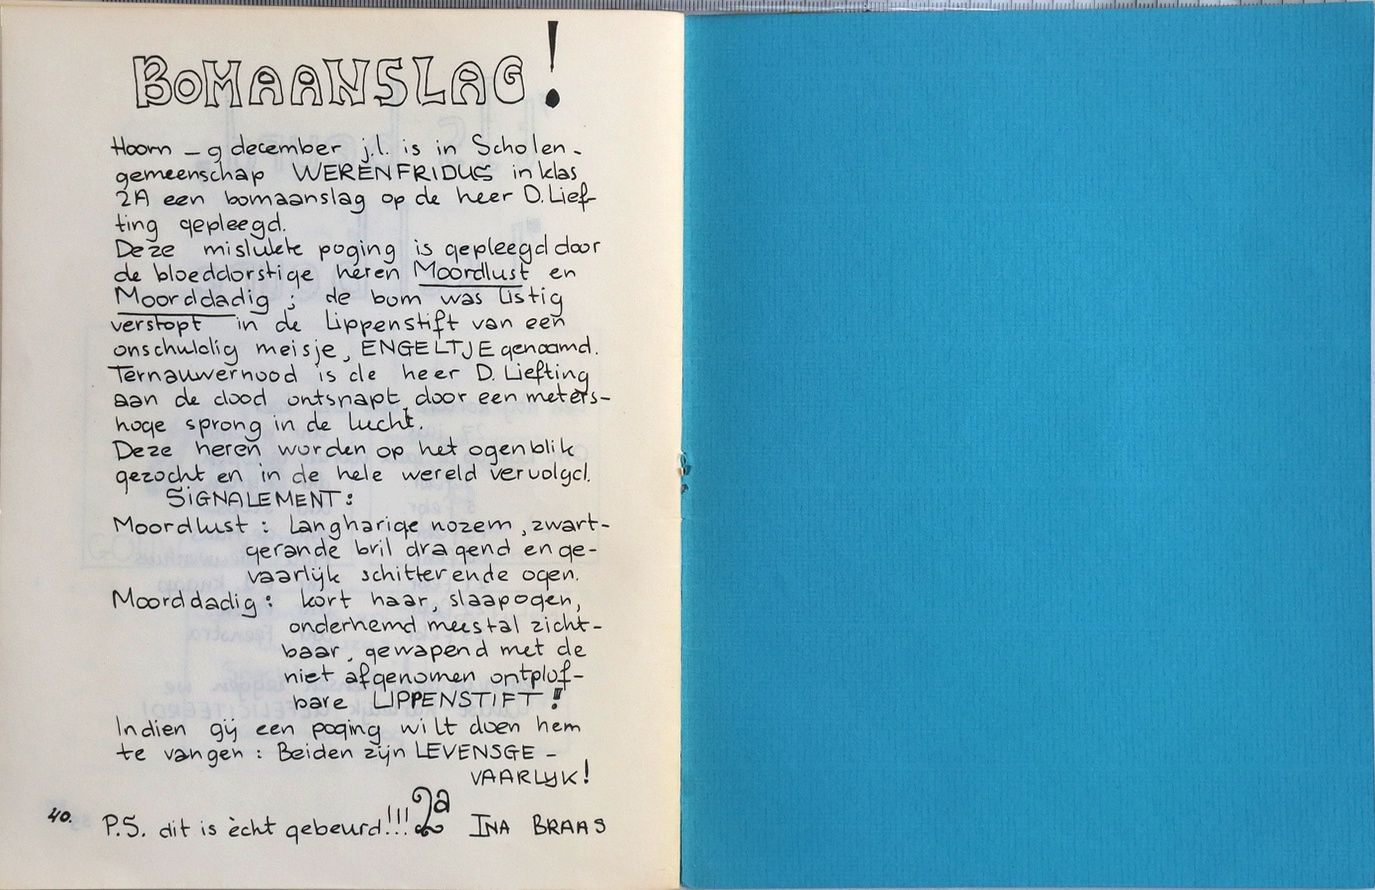 BOMAANSLAG!
Hoorn – 9 december j.l. is in Scholen-
gemeenschap WERENFRIDUS in klas
2A een bomaanslag op de heer D. Lief-
ting gepleegd.
Deze mislukte poging is gepleegd door
de bloeddorstige heren Moordlust en
Moorddadig ; de bom was listig
verstopt in de lippenstift van een
onschuldig meisje, ENGELTJE genaamd.
Ternauwernood is de heer D. Liefting
aan de dood ontsnapt door een meters-
hoge sprong in de lucht.
Deze heren worden op het ogenblik
gezocht en in de hele wereld vervolgd.
SIGNALEMENT:
Moordlust : langharige nozem, zwart-
gerande bril dragend en ge-
vaarlijk schitterende ogen.
Moorddadig : kort haar, slaapogen,
onderhemd meestal zicht-
baar, gewapend met de
niet afgenomen ontplof-
bare LIPPENSTIFT!
Indien gij een poging wilt doen hem
te vangen : Beiden zijn LEVENSGE-
VAARLIJK!
40. P.S. dit is ècht gebeurd!!! 2a INA BRAAS